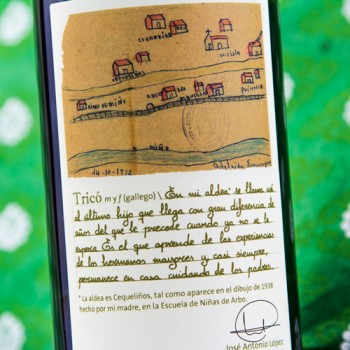 MIÑO
14-10-1938
Tricó m y f (gallego) \ "En mi aldea* se llama así
el último hijo que llega con gran diferencia de
años del que le precede cuando ya no se le
espera. Es el que aprende de las experiencias
de los hermanos mayores y casi siempre,
permanece en casa cuidando de los padres.
* La aldea es Cequeliños, tal como aparece en el dibujo de 1938
hecho por mi madre, en la Escuela de Niñas de Arbo.
José Antonio López